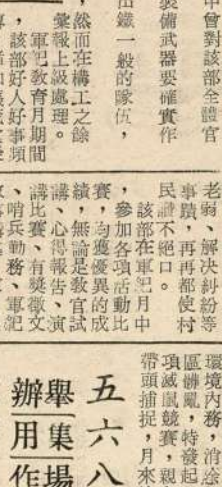 中曾對該部全體官
裝備武器要確實作
出鐵一般的隊伍，
，然而在構工之餘
彙報上級處理。
軍記教育月期間
，該部好人好事頻
老弱、解決糾紛等
事蹟，再再都使村
民讚不絕口。
該部在軍記月中
，參加各項活動比
賽，均獲優異的成
績，無論是教官試
講、心得報告、演
講比賽、有獎徵文
、哨兵勤務、軍記
環境內務，消
區髒亂，特發起
項滅鼠競賽，親
帶頭捕捉，月來
五六八
舉集場
辦用作